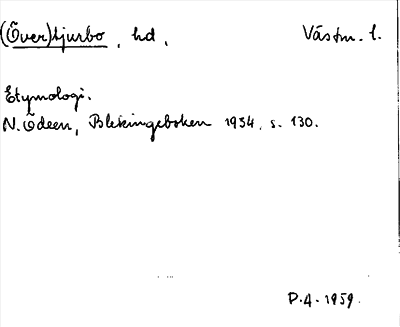 (Över)tjurbo, hd, Västm. l.
Etymologi.
N. Ödeen, Blekingeboken 1934, s. 130.
P.A. 1959.